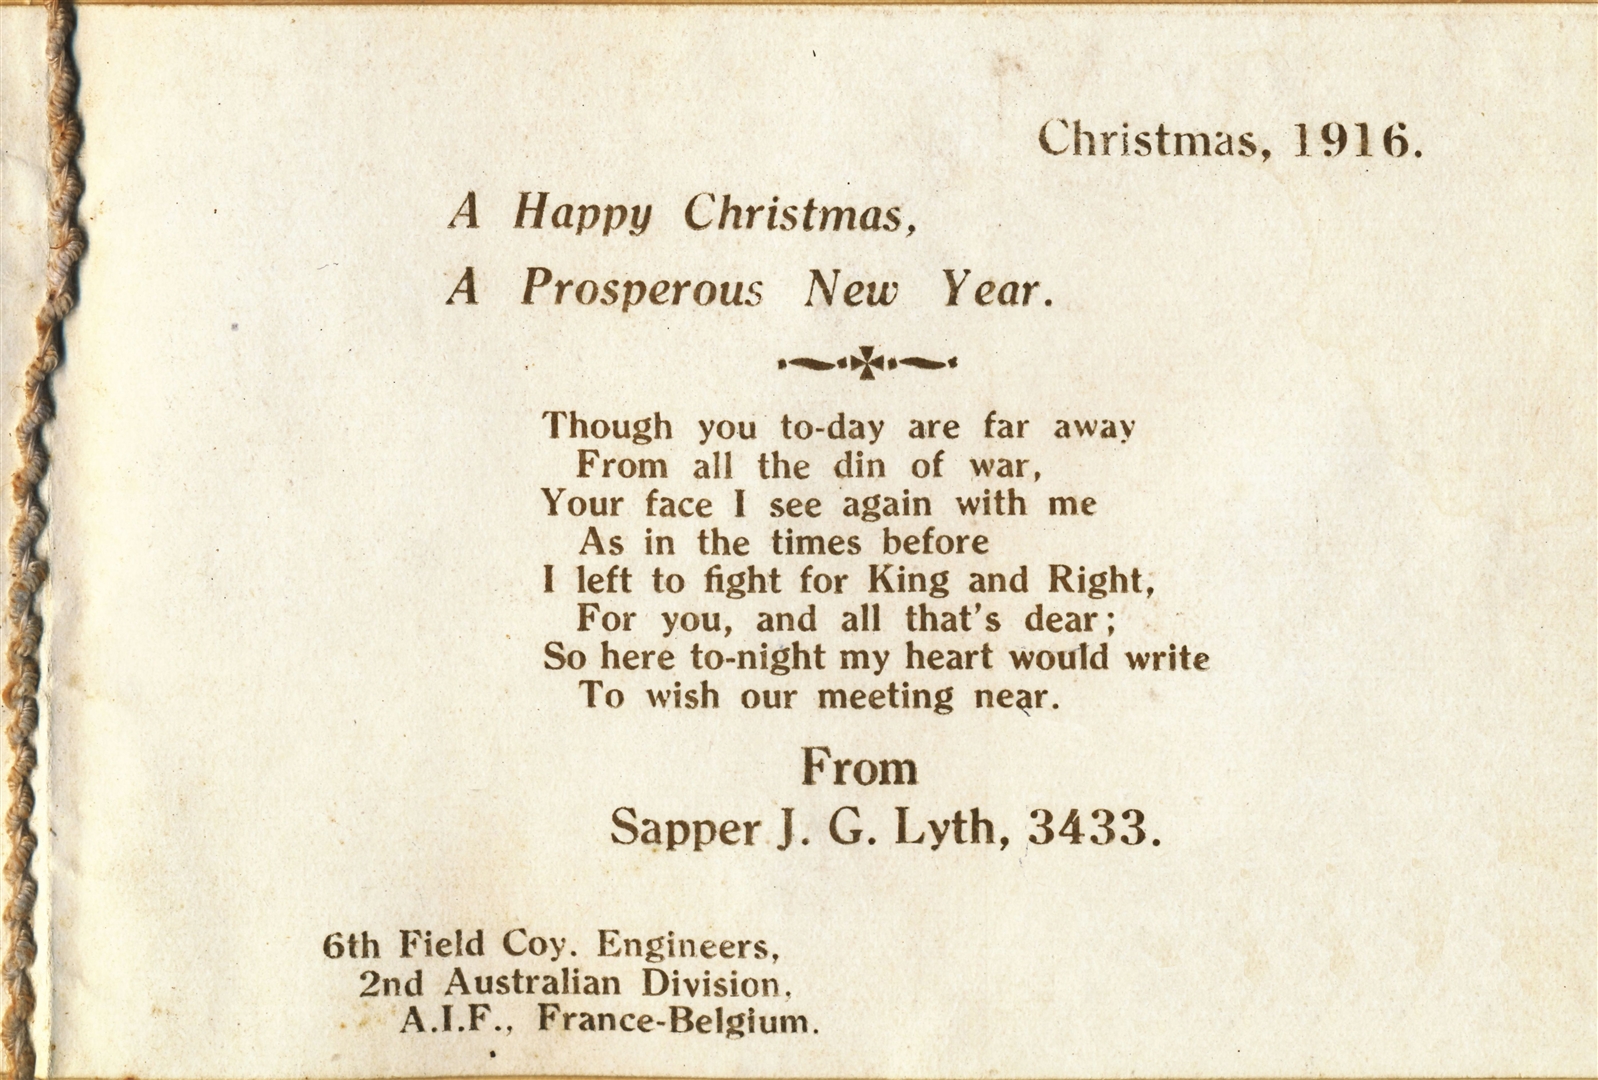 Christmas, 1916.
A Happy Christmas,
A Prosperous New Year.
Though you to-day are far away
From all the din of war,
Your face I see again with me
As in the times before
I left to fight for King and Right,
For you, and all that's dear;
So here to-night my heart would write
To wish our meeting near.
From
Sapper J. G. Lyth, 3433.
6th Field Coy. Engineers,
2nd Australian Division,
A.I.F., France-Belgium.